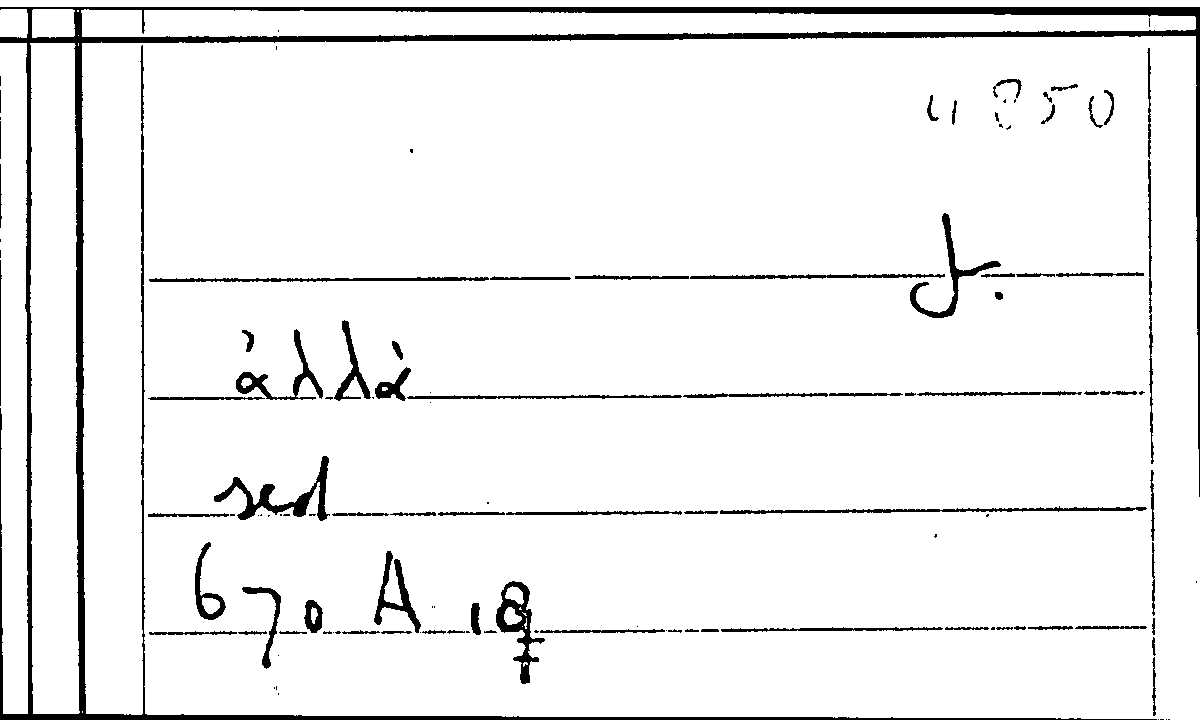 11 850
t.
ἀλλὰ
sed
670 A 18